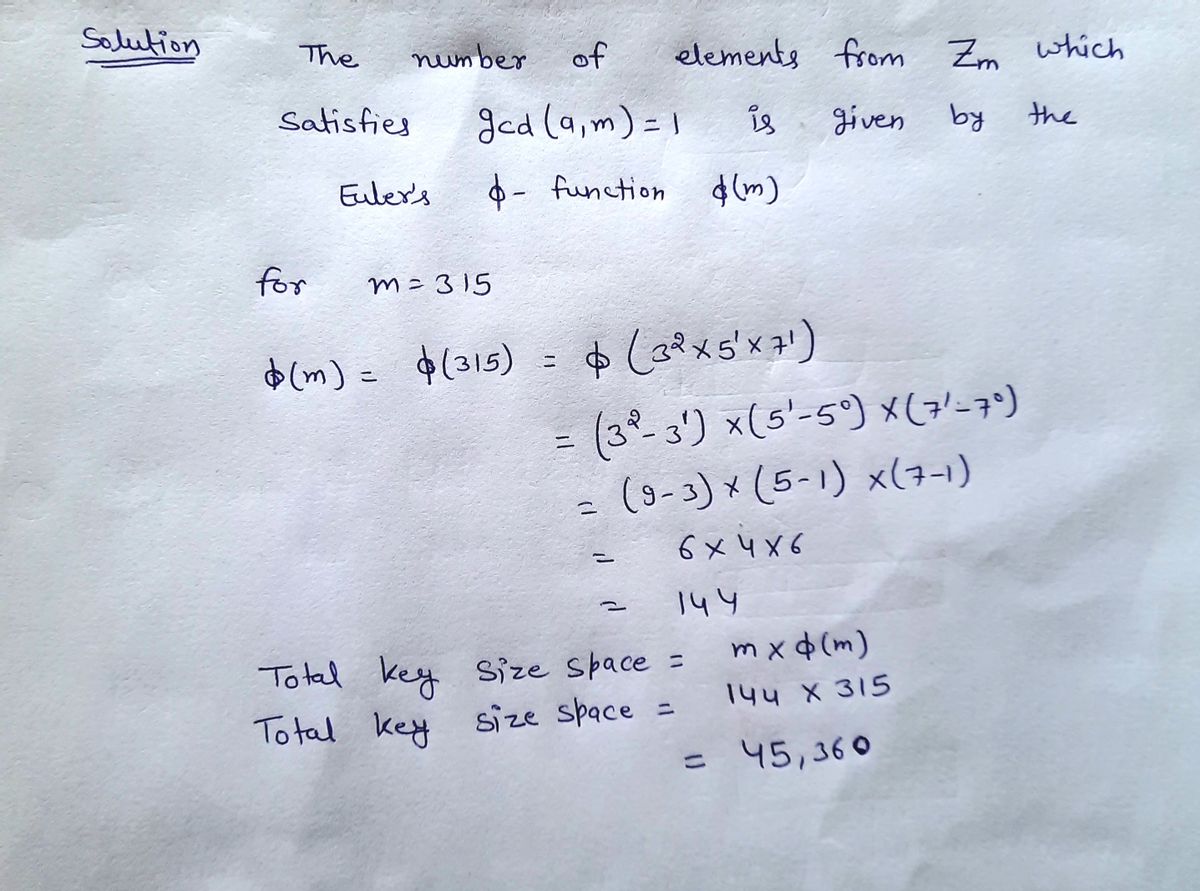 Solution
The number of elements from Zm which
Satisfies gcd(a,m)=1 is given by the
Euler's ϕ- function ϕ(m)
for m=315
ϕ(m) = ϕ(315) = ϕ (3²×5¹×7¹)
= (3²-3¹) ×(5¹-5⁰) ×(7¹-7⁰)
= (9-3)×(5-1) ×(7-1)
= 6×4×6
= 144
Total key size space = m×ϕ(m)
Total key size space = 144 × 315
= 45,360